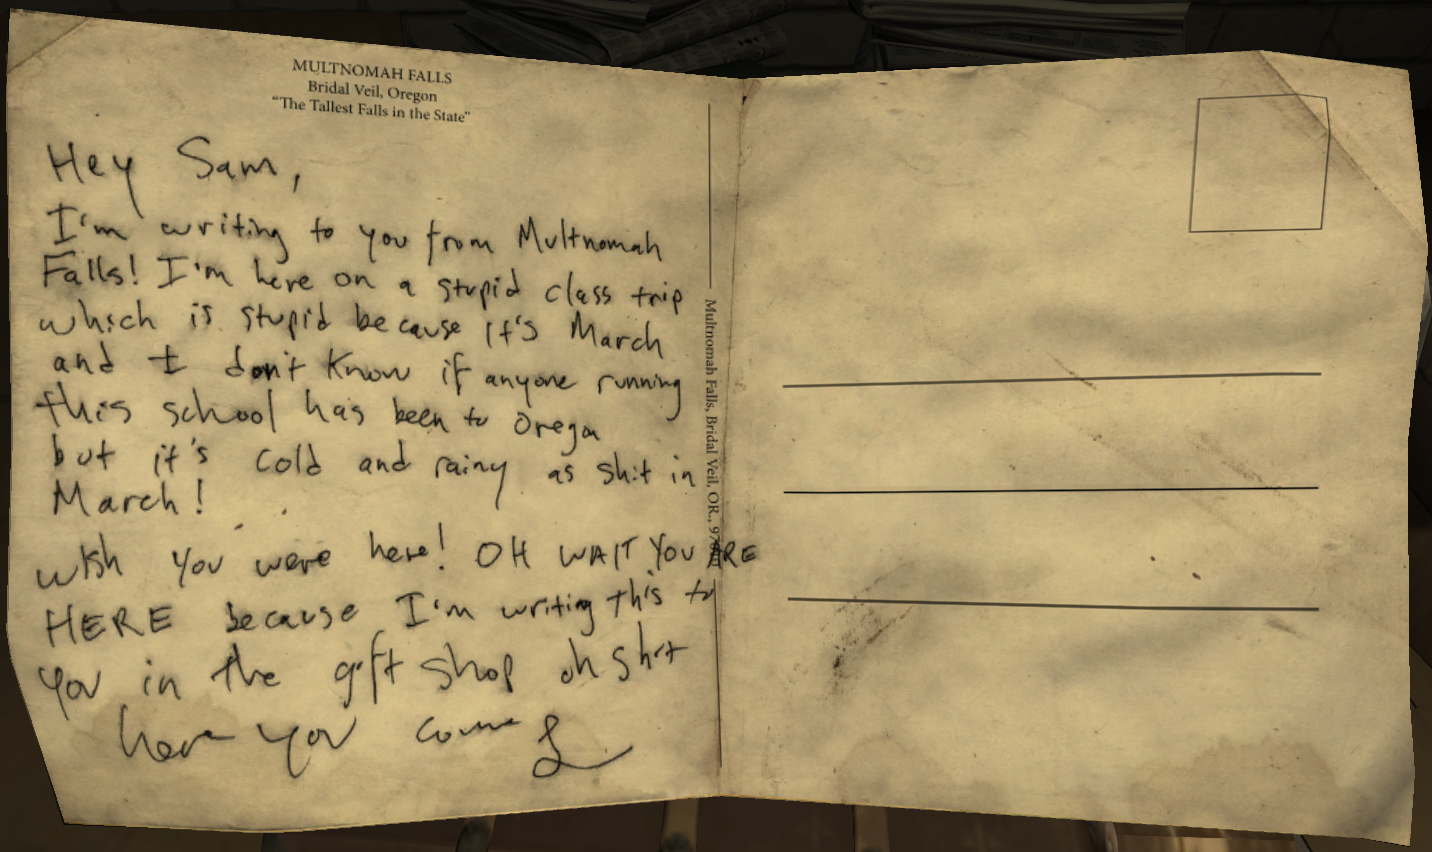 MULTNOMAH FALLS
Bridal Veil, Oregon
"The Tallest Falls in the State"
Hey Sam,
I'm writing to you from Multnomah
Falls! I'm here on a stupid class trip
which is stupid because it's March
and I don't know if anyone running
this school has been to Oregon
but it's cold and rainy as shit in
March!
wish you were here! OH WAIT YOU ARE
HERE because I'm writing this to
you in the gift shop oh shit
here you come L
Multnomah Falls, Bridal Veil, OR.,